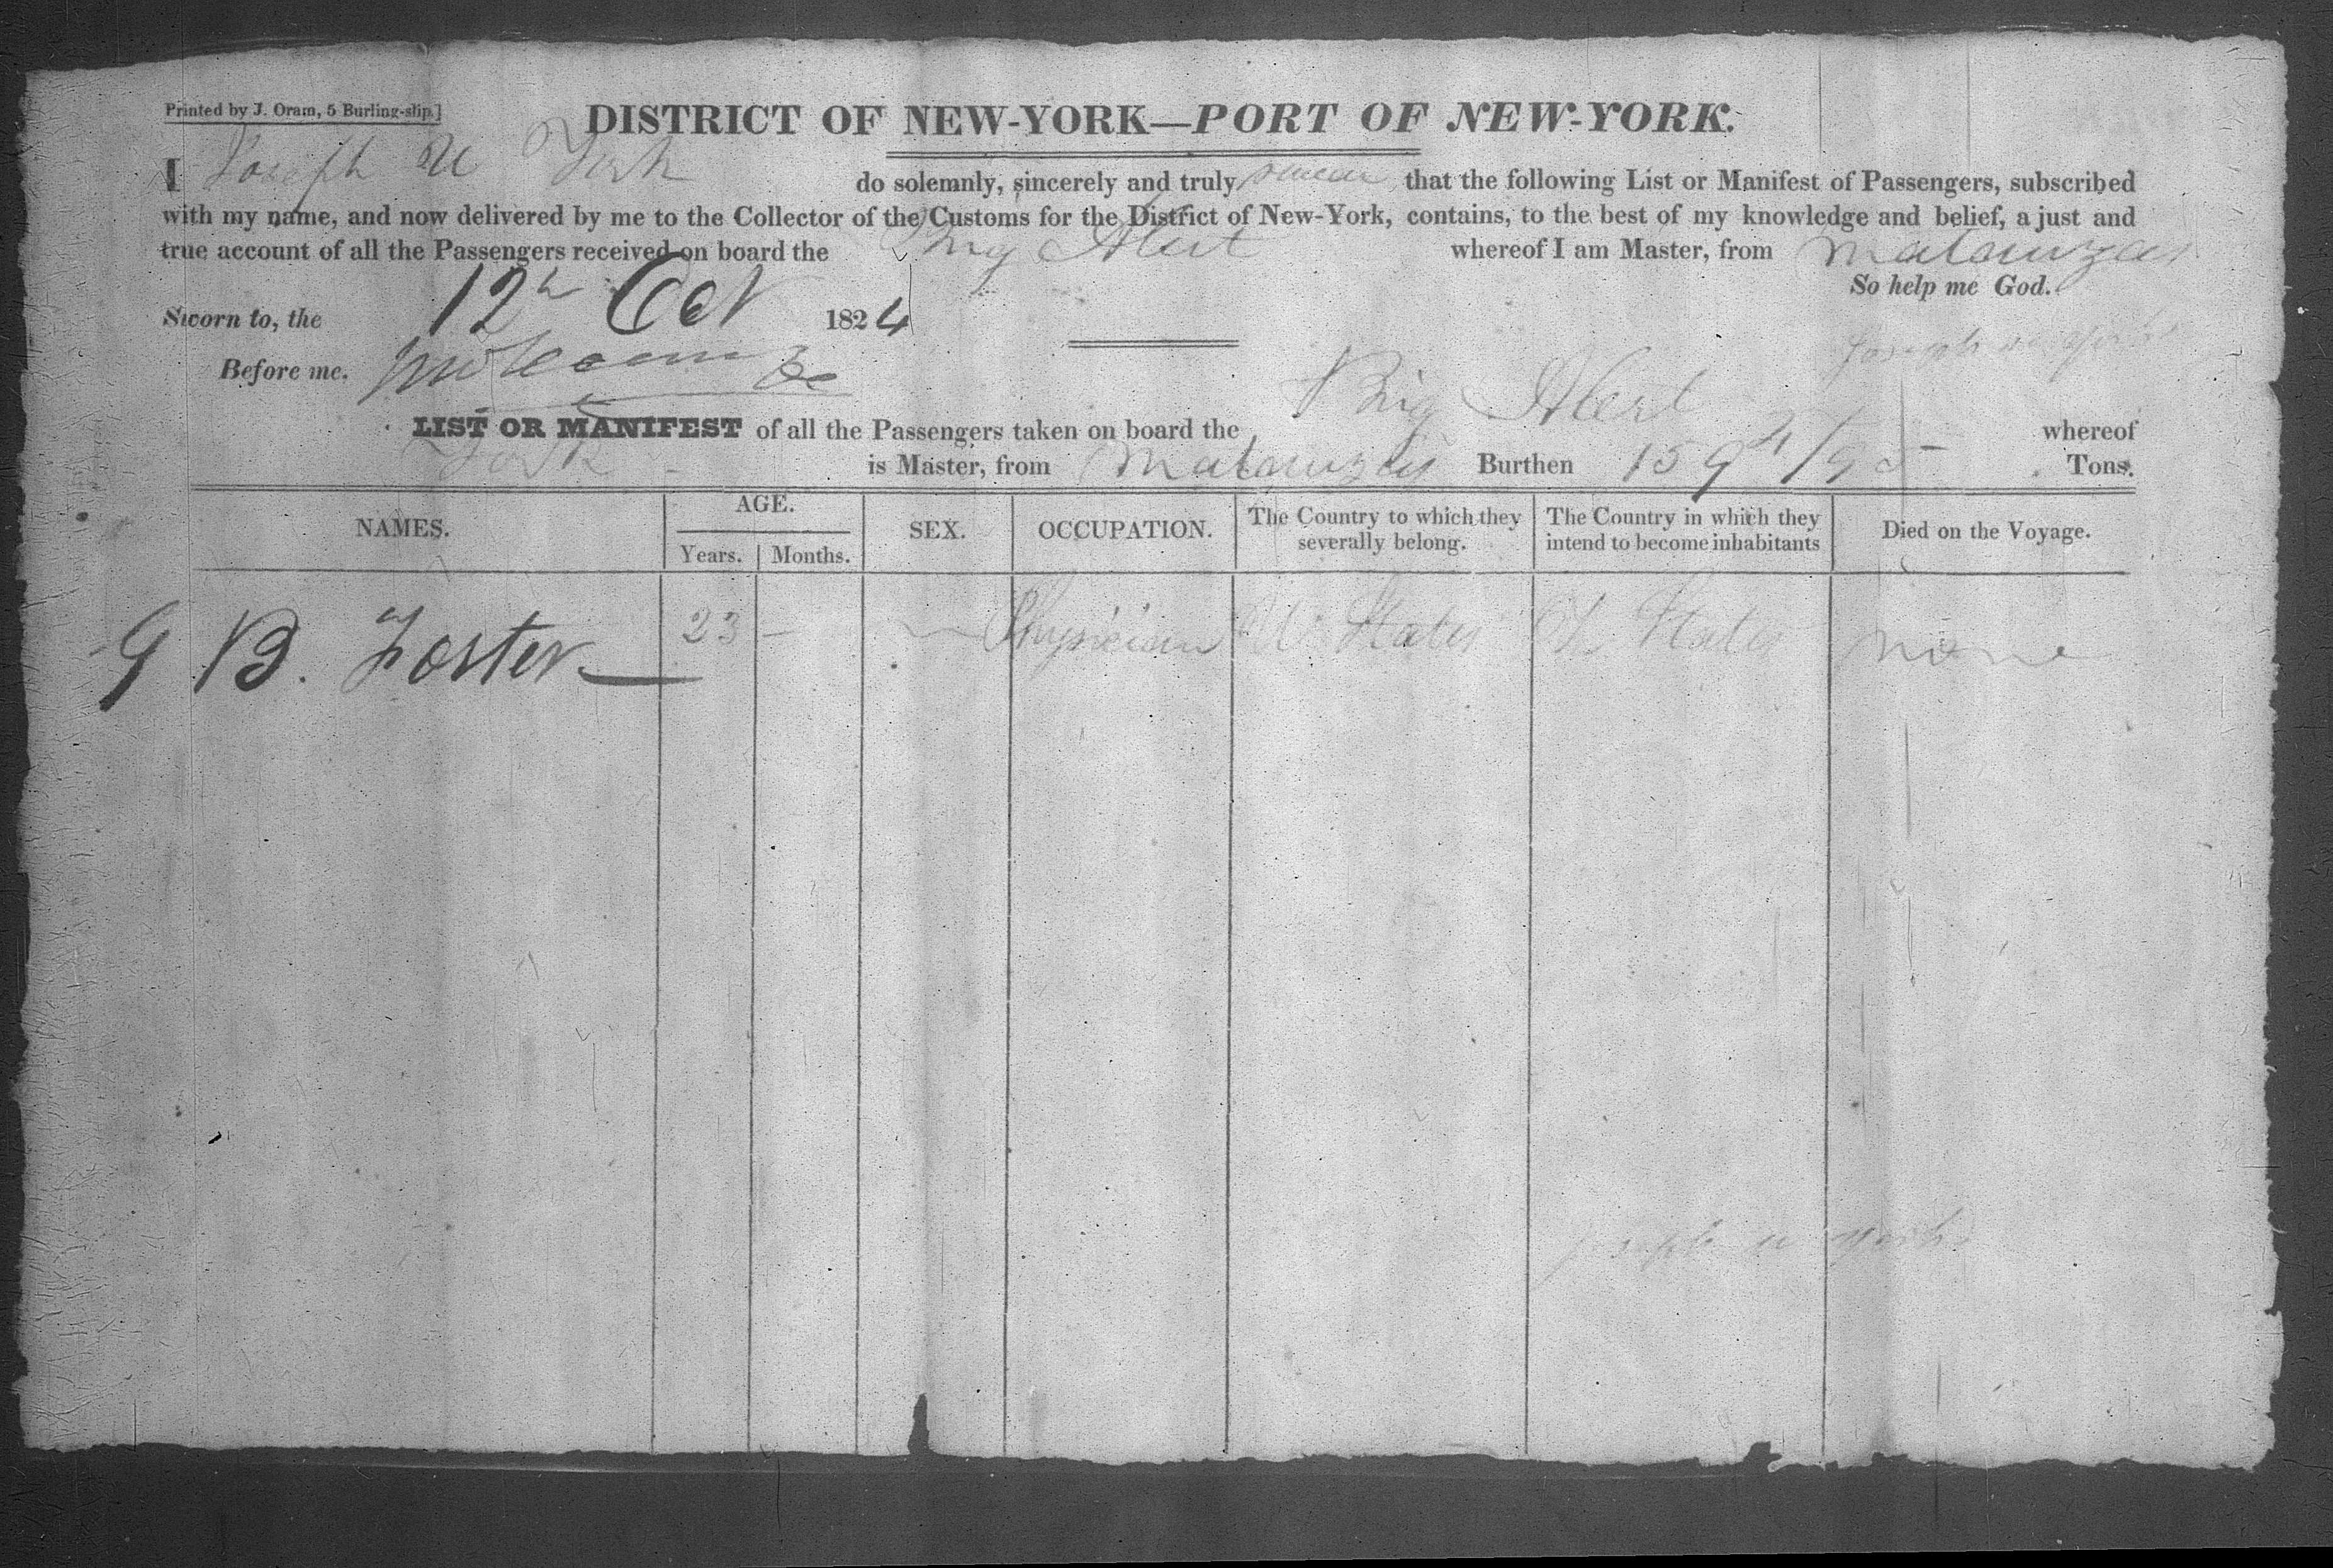 Printed by J. Oram, 5 Burling-slip.]
DISTRICT OF NEW-YORK—PORT OF NEW-YORK.
I Joseph W York do solemnly, sincerely and truly swear that the following List or Manifest of Passengers, subscribed
with my name, and now delivered by me to the Collector of the Customs for the District of New-York, contains, to the best of my knowledge and belief, a just and
true account of all the Passengers received on board the Brig Alert whereof I am Master, from Matanzas
So help me God.
Sworn to, the 12th Oct 1824
Joseph W York
Before me.
LIST OR MANIFEST of all the Passengers taken on board the Brig Alert whereof
York is Master, from Matanzas Burthen 159 4/95 Tons.
NAMES. AGE. SEX. OCCUPATION. The Country to which they severally belong. The Country in which they intend to become inhabitants Died on the Voyage.
Years. Months.
G B. Foster 23 — Physician U States U States none
Joseph W York